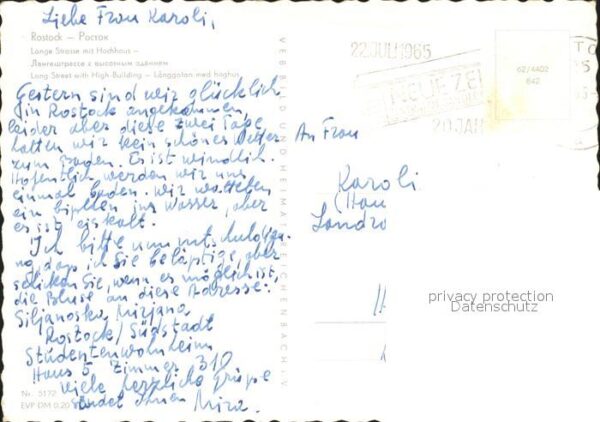 Liebe Frau Karoli,
Rostock — Росток
Lange Strasse mit Hochhaus —
Лангештрассе с высотным зданием
Long Street with High Building — Långgatan med höghus
Gestern sind wir glücklich
in Rostock angekommen,
leider aber diese zwei Tage
hatten wir kein schönes Wetter
zum Baden. Es ist windlich.
Hofentlich werden wir uns
einmal baden. Wir watteten
ein bißchen ins Wasser, aber
es ist eiskalt.
Ich bitte um
daß ich Sie beläßtige, aber
schicken Sie, wenn es möglich ist,
die Bluse an diese Adresse:
Siljanoska Mirjana
Rostock/Südstadt
Studentenwohnheim
Haus 5, Zimmer 310
Viele herzliche Grüße
sendet Ihnen Mira.
Nr. 5172
EVP DM 0,20
VEB BILD UND HEIMAT REICHENBACH i. V.
22.JULI 1965
20 JAH
62/4402
842
An Frau
Karoli
Hau
Landro
privacy protection
Datenschutz